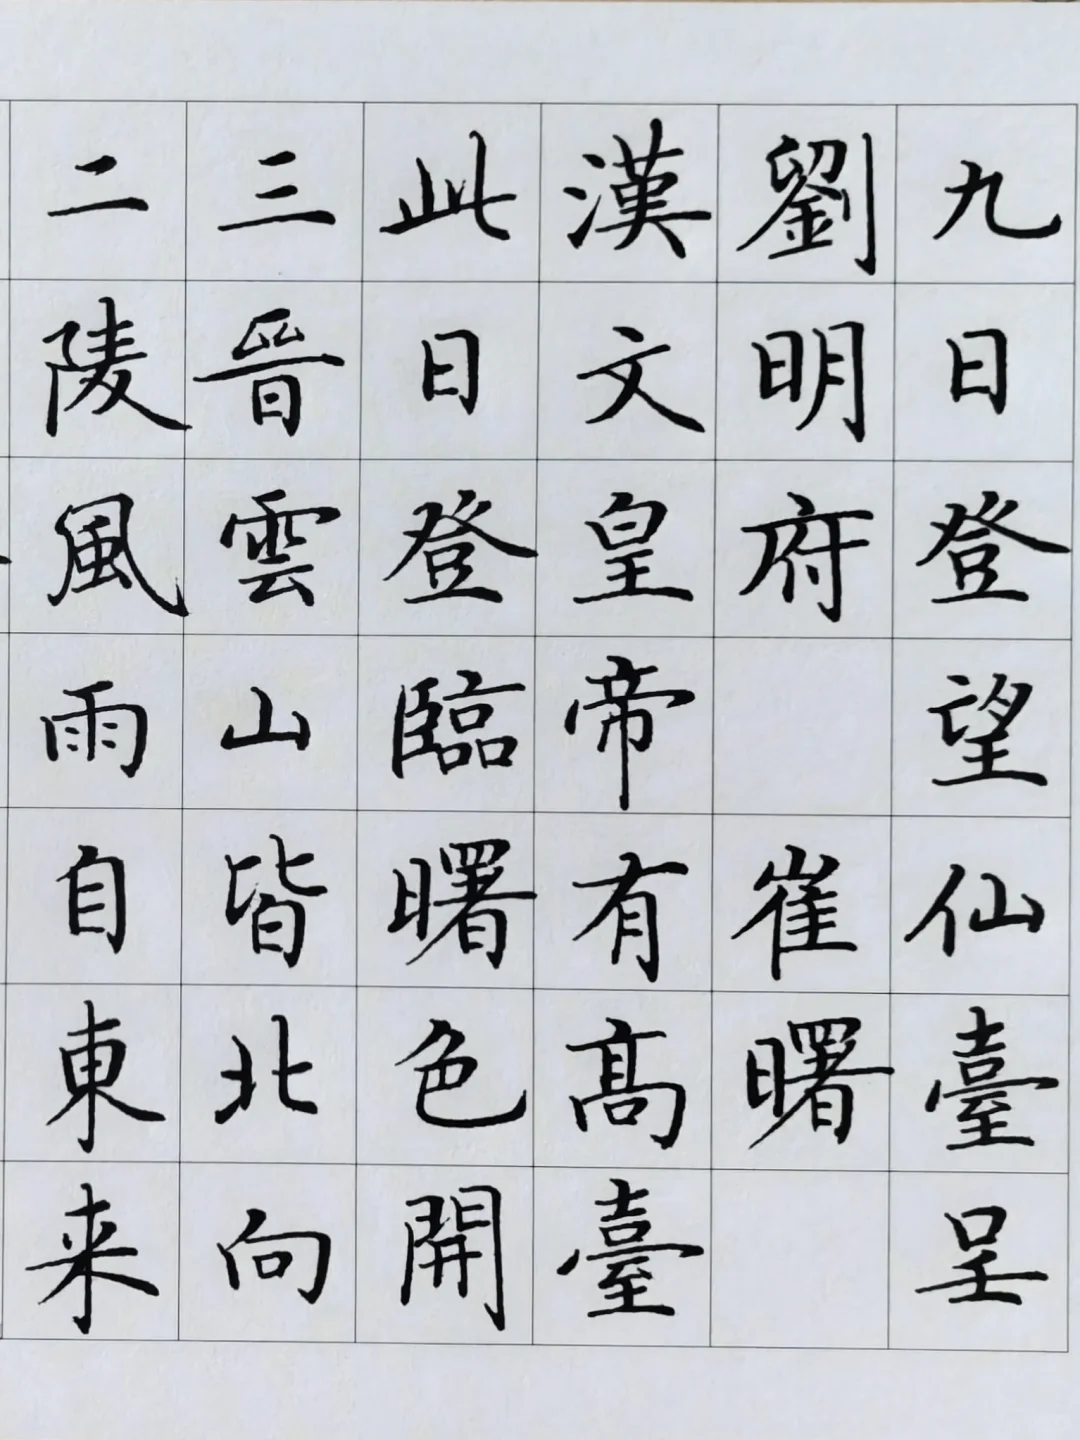 九日登望仙臺呈
劉明府 崔曙
漢文皇帝有高臺
此日登臨曙色開
三晉雲山皆北向
二陵風雨自東来